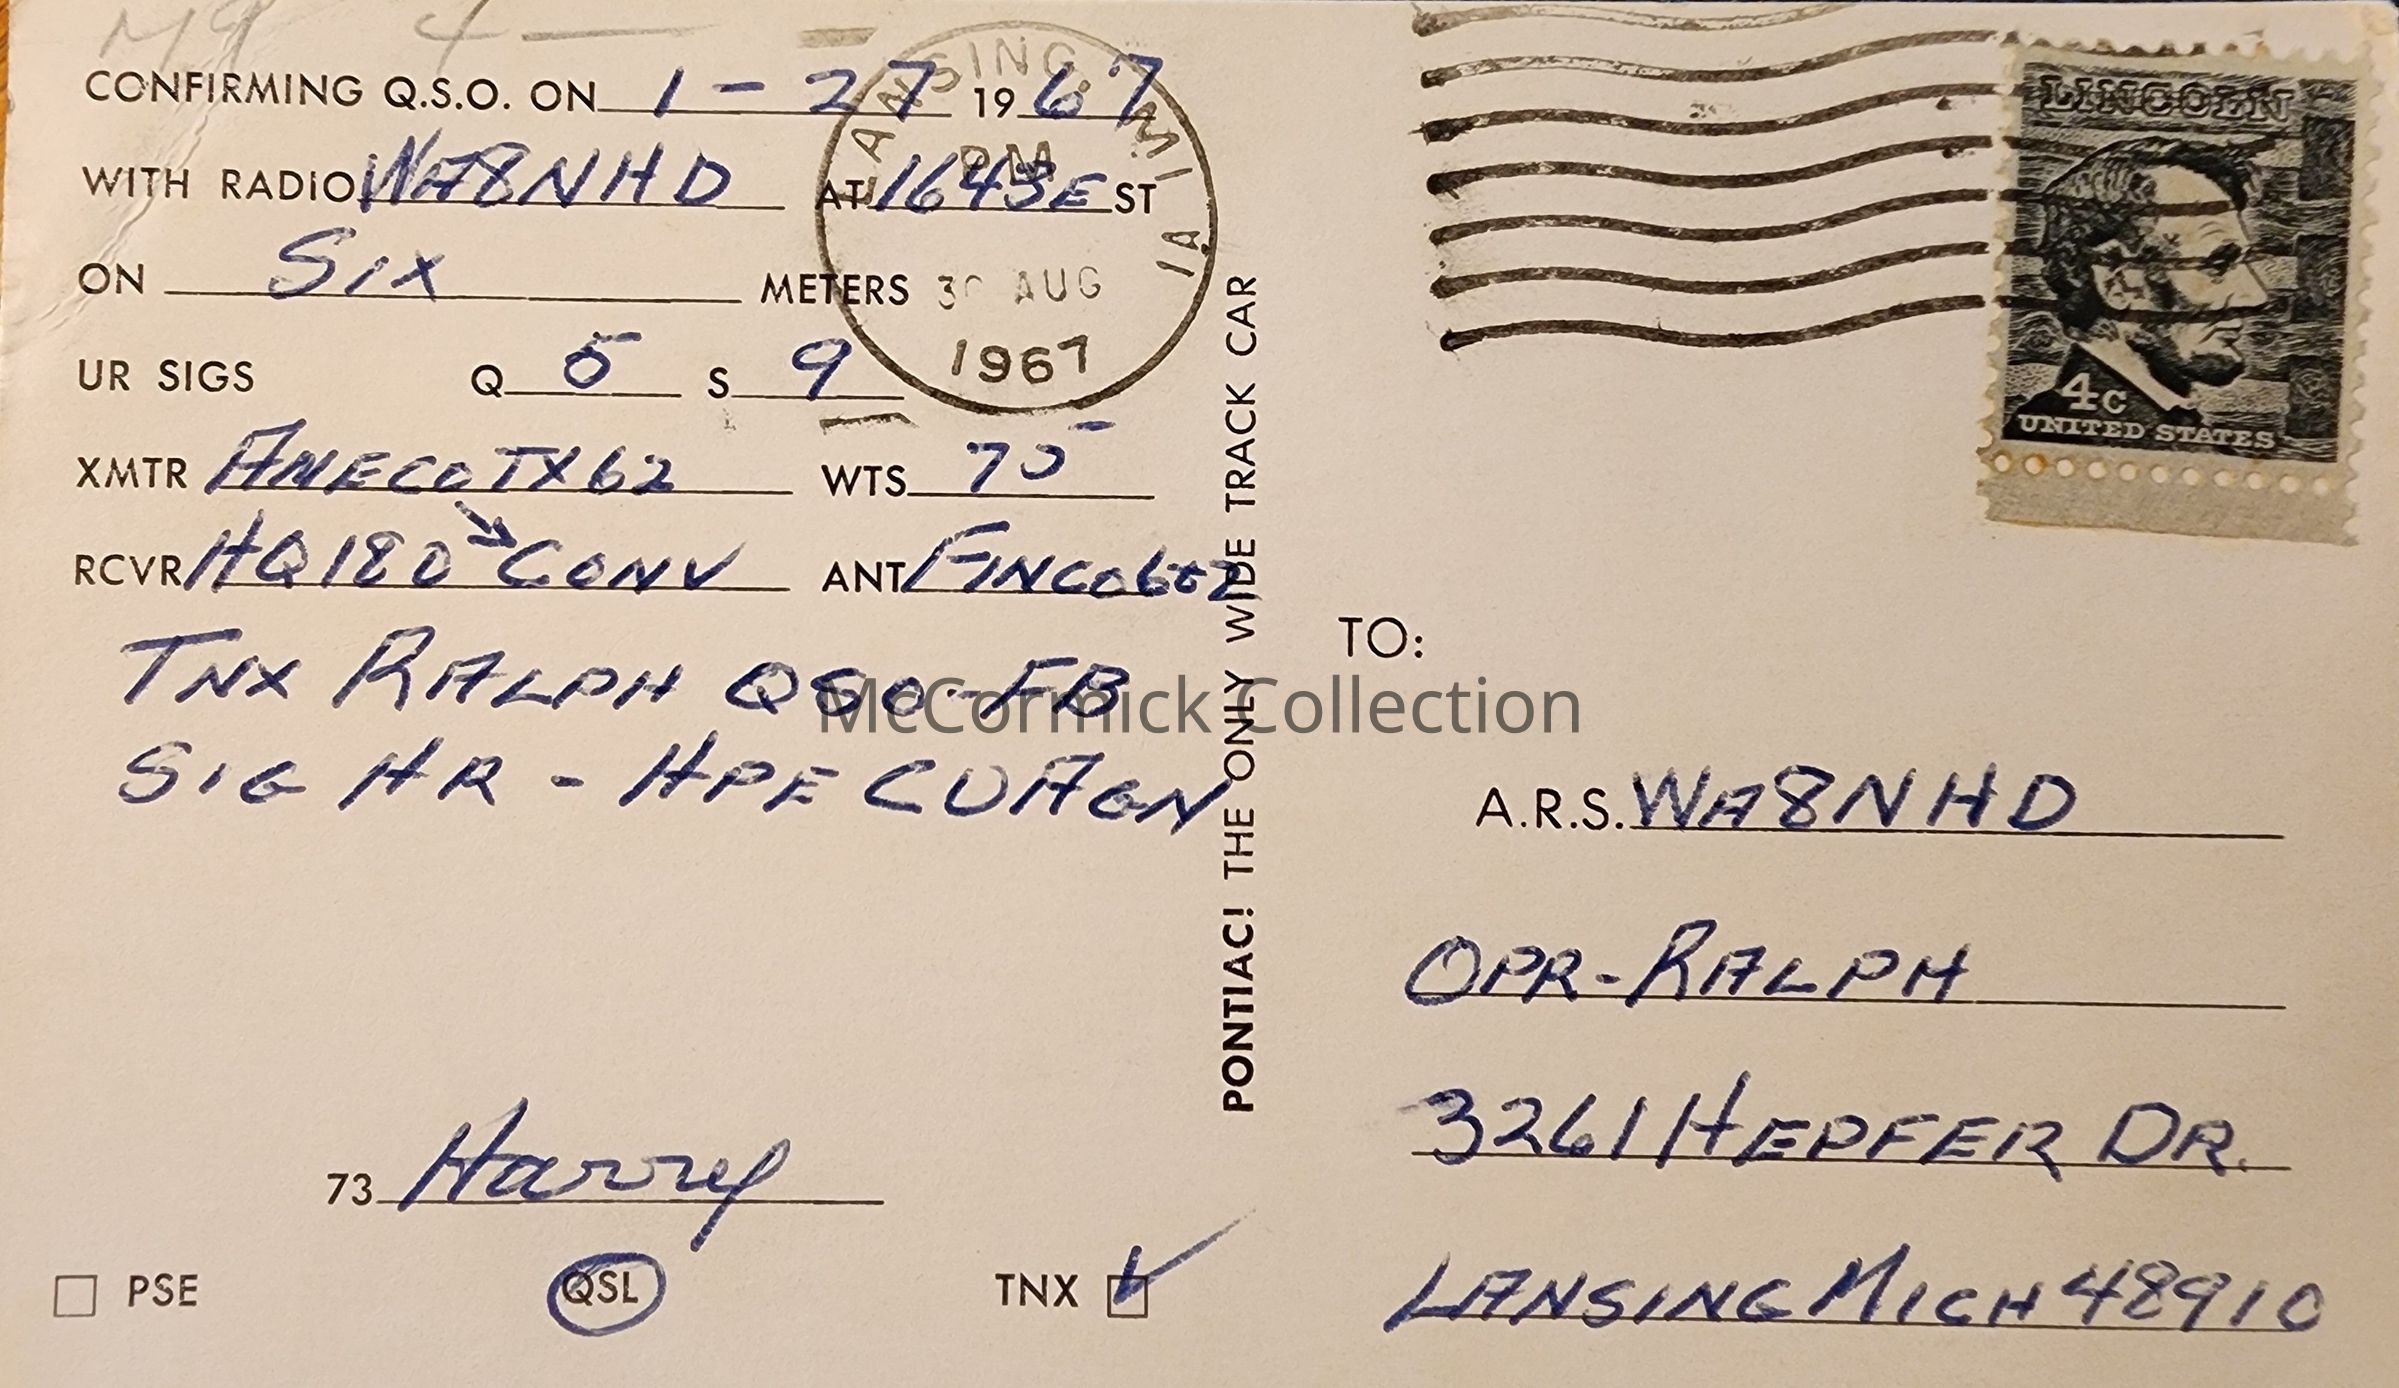 CONFIRMING Q.S.O. ON 1-27 1967
WITH RADIO WA8NHD AT 1645 EST
ON SIX METERS
UR SIGS Q 5 S 9
XMTR AMECO TX62 WTS 75
RCVR HQ180 → CONV ANT FINCO 6&2
TNX RALPH QSO-FB
SIG HR - HPE CUAGN
73 Harry
PSE QSL TNX ✓
LANSING, MI
PM
30 AUG
1967
PONTIAC! THE ONLY WIDE TRACK CAR
LINCOLN
4c
UNITED STATES
TO:
A.R.S. WA8NHD
OPR-RALPH
3261 HEPFER DR.
LANSING MICH 48910
McCormick Collection